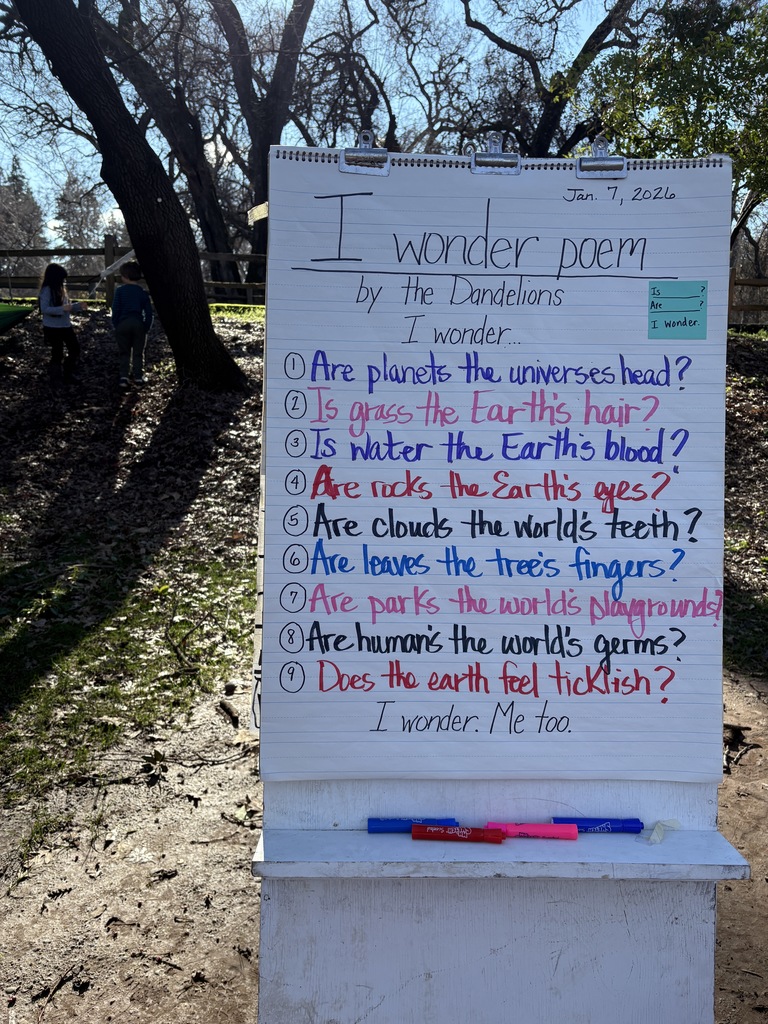 Jan. 7, 2026
I wonder poem
by the Dandelions
I wonder...
Is ____?
Are ____?
I wonder.
① Are planets the universes head?
② Is grass the Earth's hair?
③ Is water the Earth's blood?
④ Are rocks the Earth's eyes?
⑤ Are clouds the world's teeth?
⑥ Are leaves the tree's fingers?
⑦ Are parks the world's playgrounds?
⑧ Are human's the world's germs?
⑨ Does the earth feel ticklish?
I wonder. Me too.